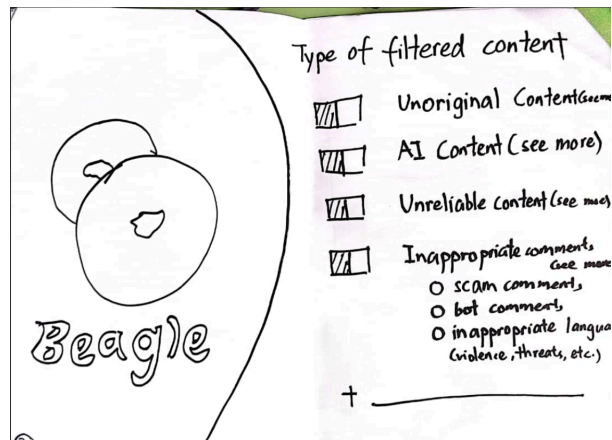 Beagle
Type of filtered content
Unoriginal Content (see
AI Content (see more)
Unreliable content (see more)
Inappropriate comments
(see more
O scam comments
O bot comments
O inappropriate langua
(violence, threats, etc.)
+